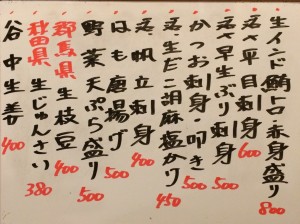 生インド鮪トロ赤身盛り 800
活〆平目刺身 600
活〆早生ぶり刺身 500
かつお刺身・叩き 500
活生だこ胡麻塩かり 450
活帆立刺身 400
はも唐揚げ 500
野菜天ぷら盛り 500
群馬県 生枝豆 400
秋田県 生じゅんさい 380
谷中生姜 400